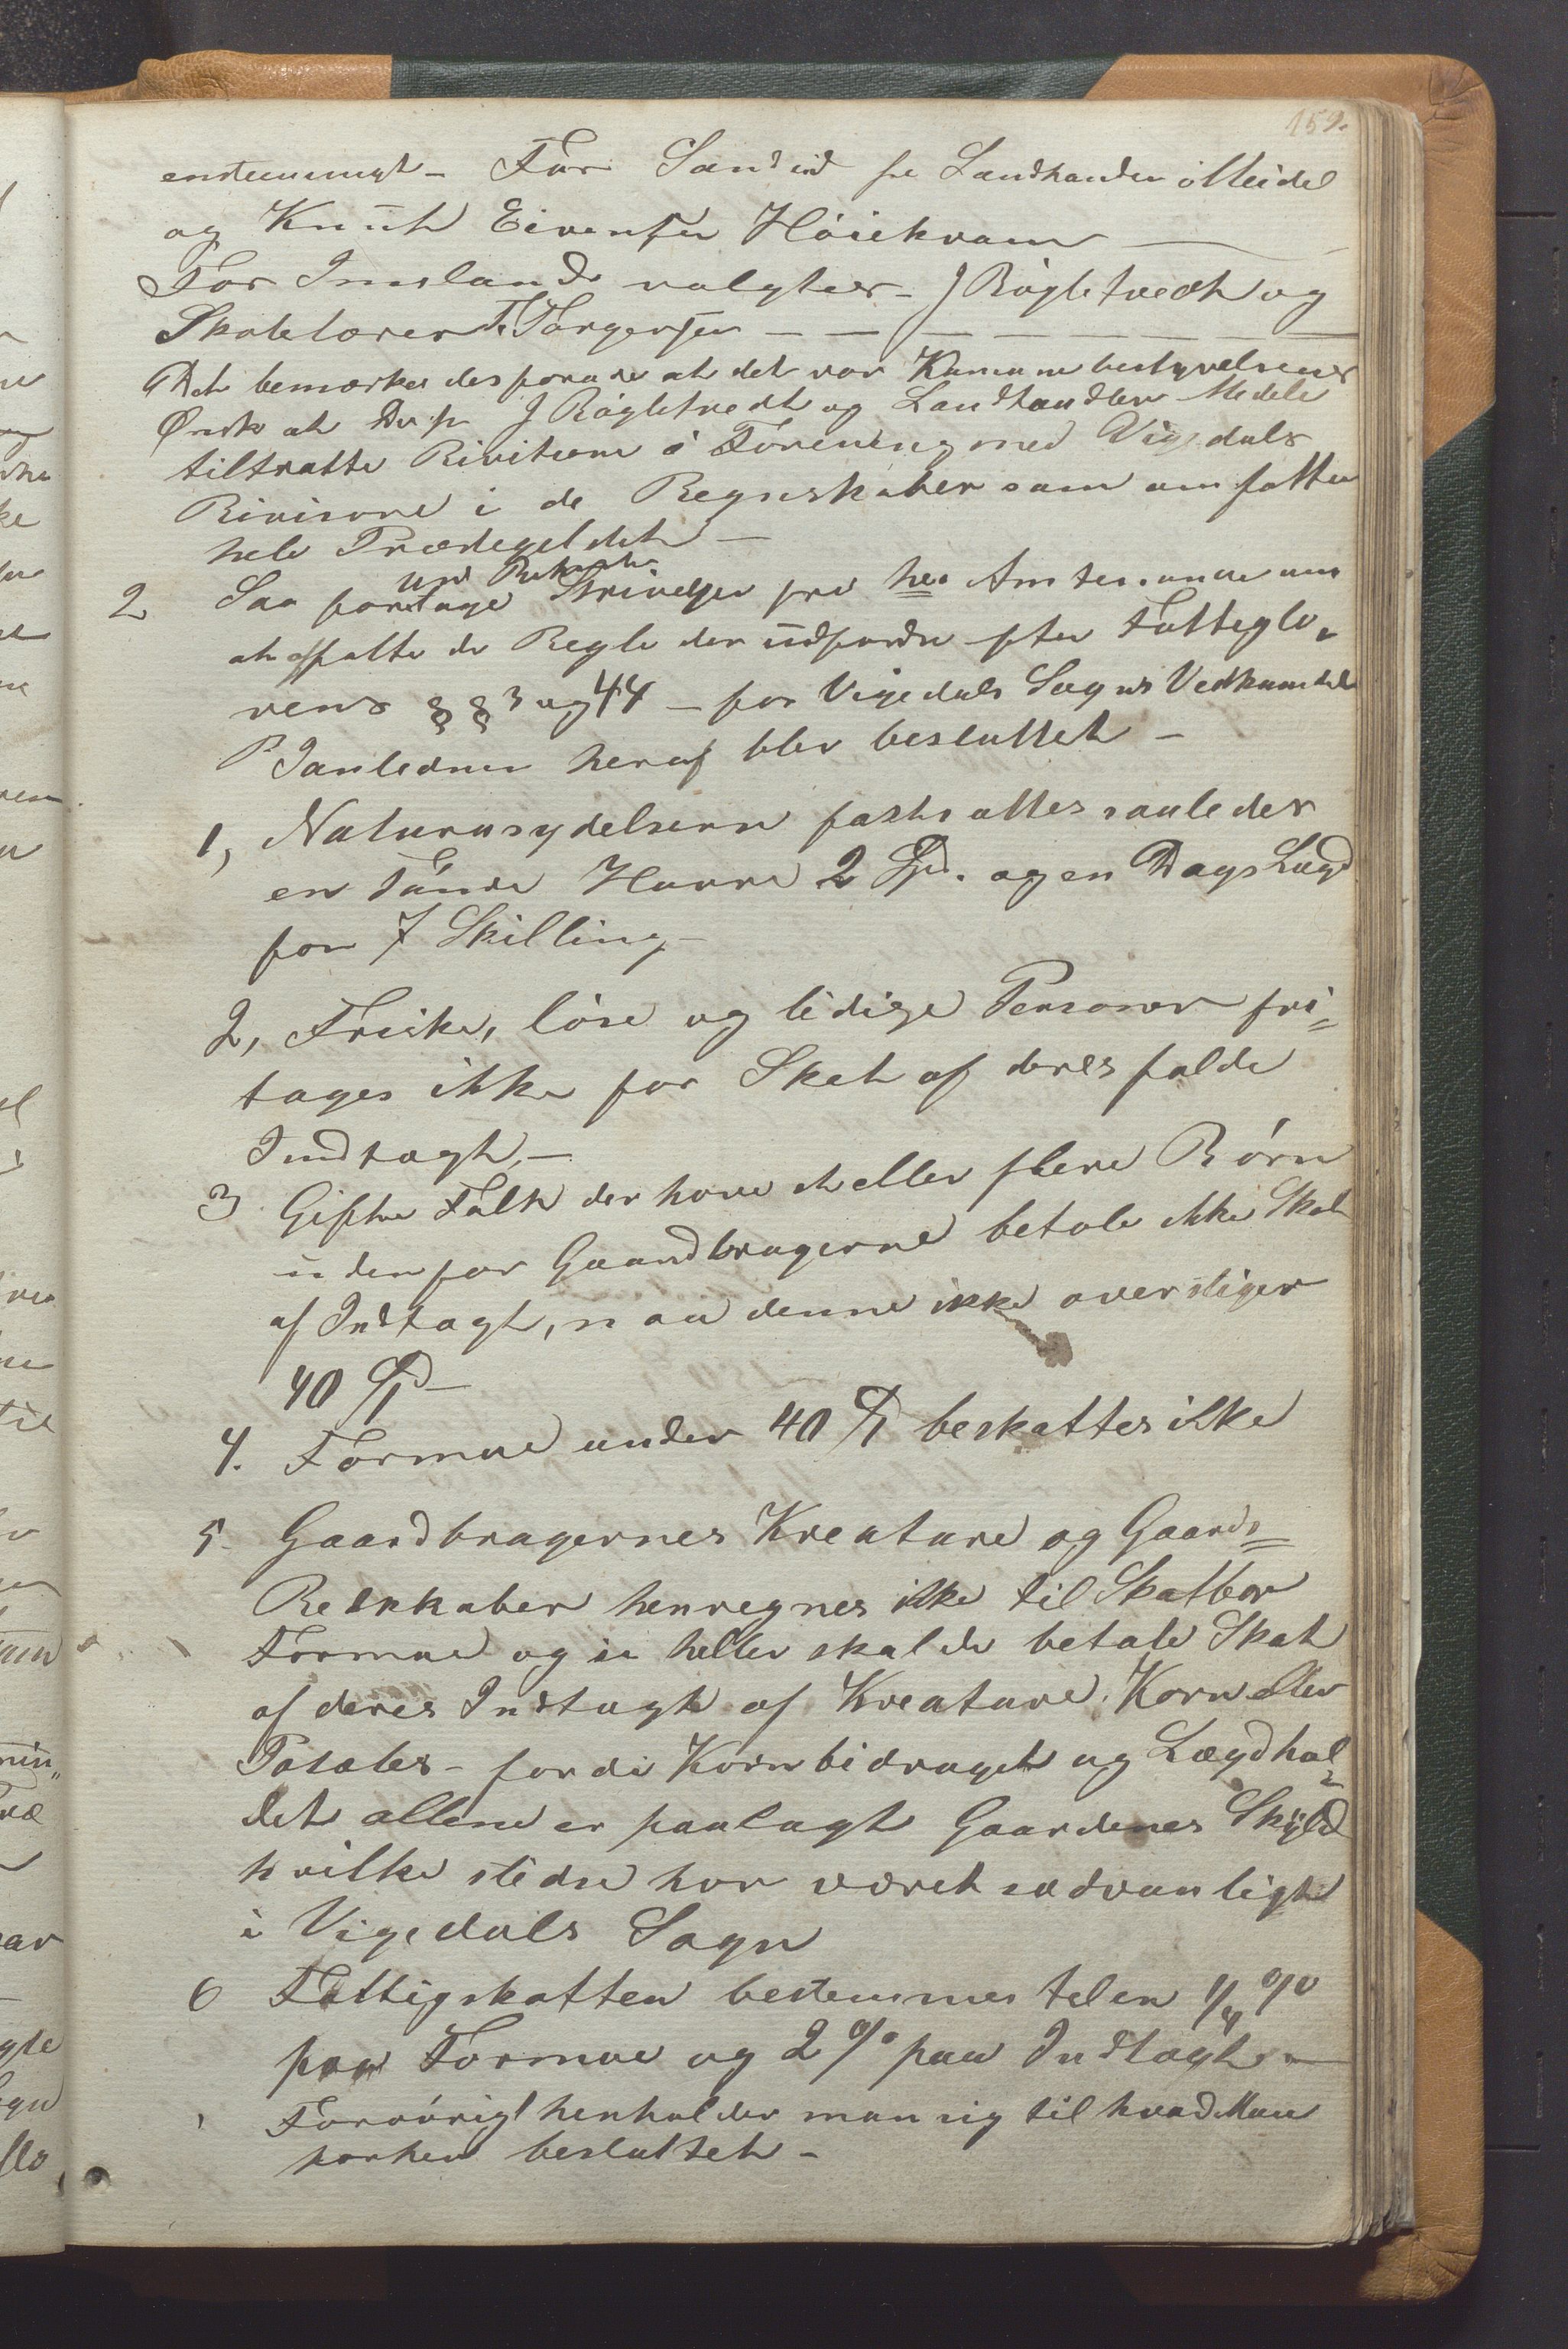 159.
enstemmigt - For Sandeid Landhandler Meidel
og Knut Eivensen Høiekvam
For Imsland valgtes - J Bøgletvedt og
Skolelærer T. Torgersen
Det bemærkes desforuden at det var Kommunebestyrelsens
Ønske at J Bøgletvedt og Landhandler Medele
tiltratte i Forening med Vigedals
Rivisorne i de Regnskaber som omfatter
hele Præstegeldet
2 Saa foretages Skrivelse fra hr. Amtmann om
at affatte de Regle der udfordre efter Fattiglo-
vens §§ 3 og 44 - for Vigedals Sogns Vedkommende
I anledning heraf blev besluttet -
1, Naturalydelserne fastsættes saaledes
en Tønde Havre 2 Spd. og en Dags Lægd
for 7 Skilling -
2, Friske, løse og ledige Personer fri-
tages ikke for Skat af deres fulde
Indtægt, -
3 Gifte Folk der have et eller flere Børn
udenfor Gaardbrugerne betale ikke Skat
af Indtægt, naar denne ikke overstiger
40 Spd -
4. Formue under 40 Spd beskattes ikke
5. Gaardbrugernes Kreature og Gaards-
Redskaber henregnes ikke til Skatbar
Formue og ei heller skal de betale Skat
af deres Indtægt af Kreature, Korn eller
Poteter - fordi Kornbidraget og Lægdhol-
det allene er paalagt Gaardenes Skyld
hvilke stedse har været sædvanligt
i Vigedals Sogn
6 Fattigskatten bestemmes til en 1/4 %
paa Formue og 2 % paa Indtægt -
Forøvrigt henholder man sig til hvad Man
forhen besluttet -